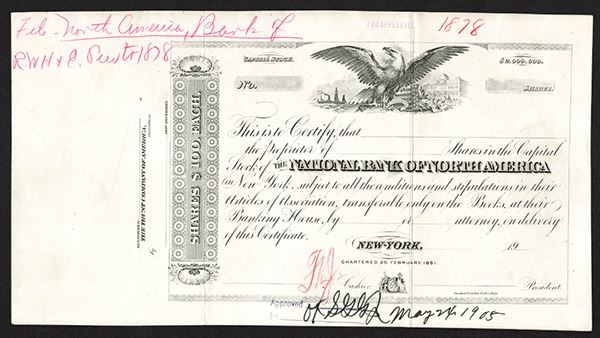 Feb. North America, Bank of
RWH & E. Prest 1878
FOR APPROVAL
1878
CAPITAL STOCK.
$2,000,000.
No.
SHARES.
This is to Certify, that
the Proprietor of Shares in the Capital
Stock of THE NATIONAL BANK OF NORTH AMERICA
(in New York, subject to all the conditions and stipulations in their
Articles of Association, transferable only on the Books, at their
Banking House, by or attorney, on delivery
of this Certificate.
NEW-YORK, 19
CHARTERED 26 FEBRUARY, 1851.
Cashier.
President.
SHARES $100. EACH.
REGISTERED
THE TRUST COMPANY OF AMERICA.
By
Approved
May 24 1905